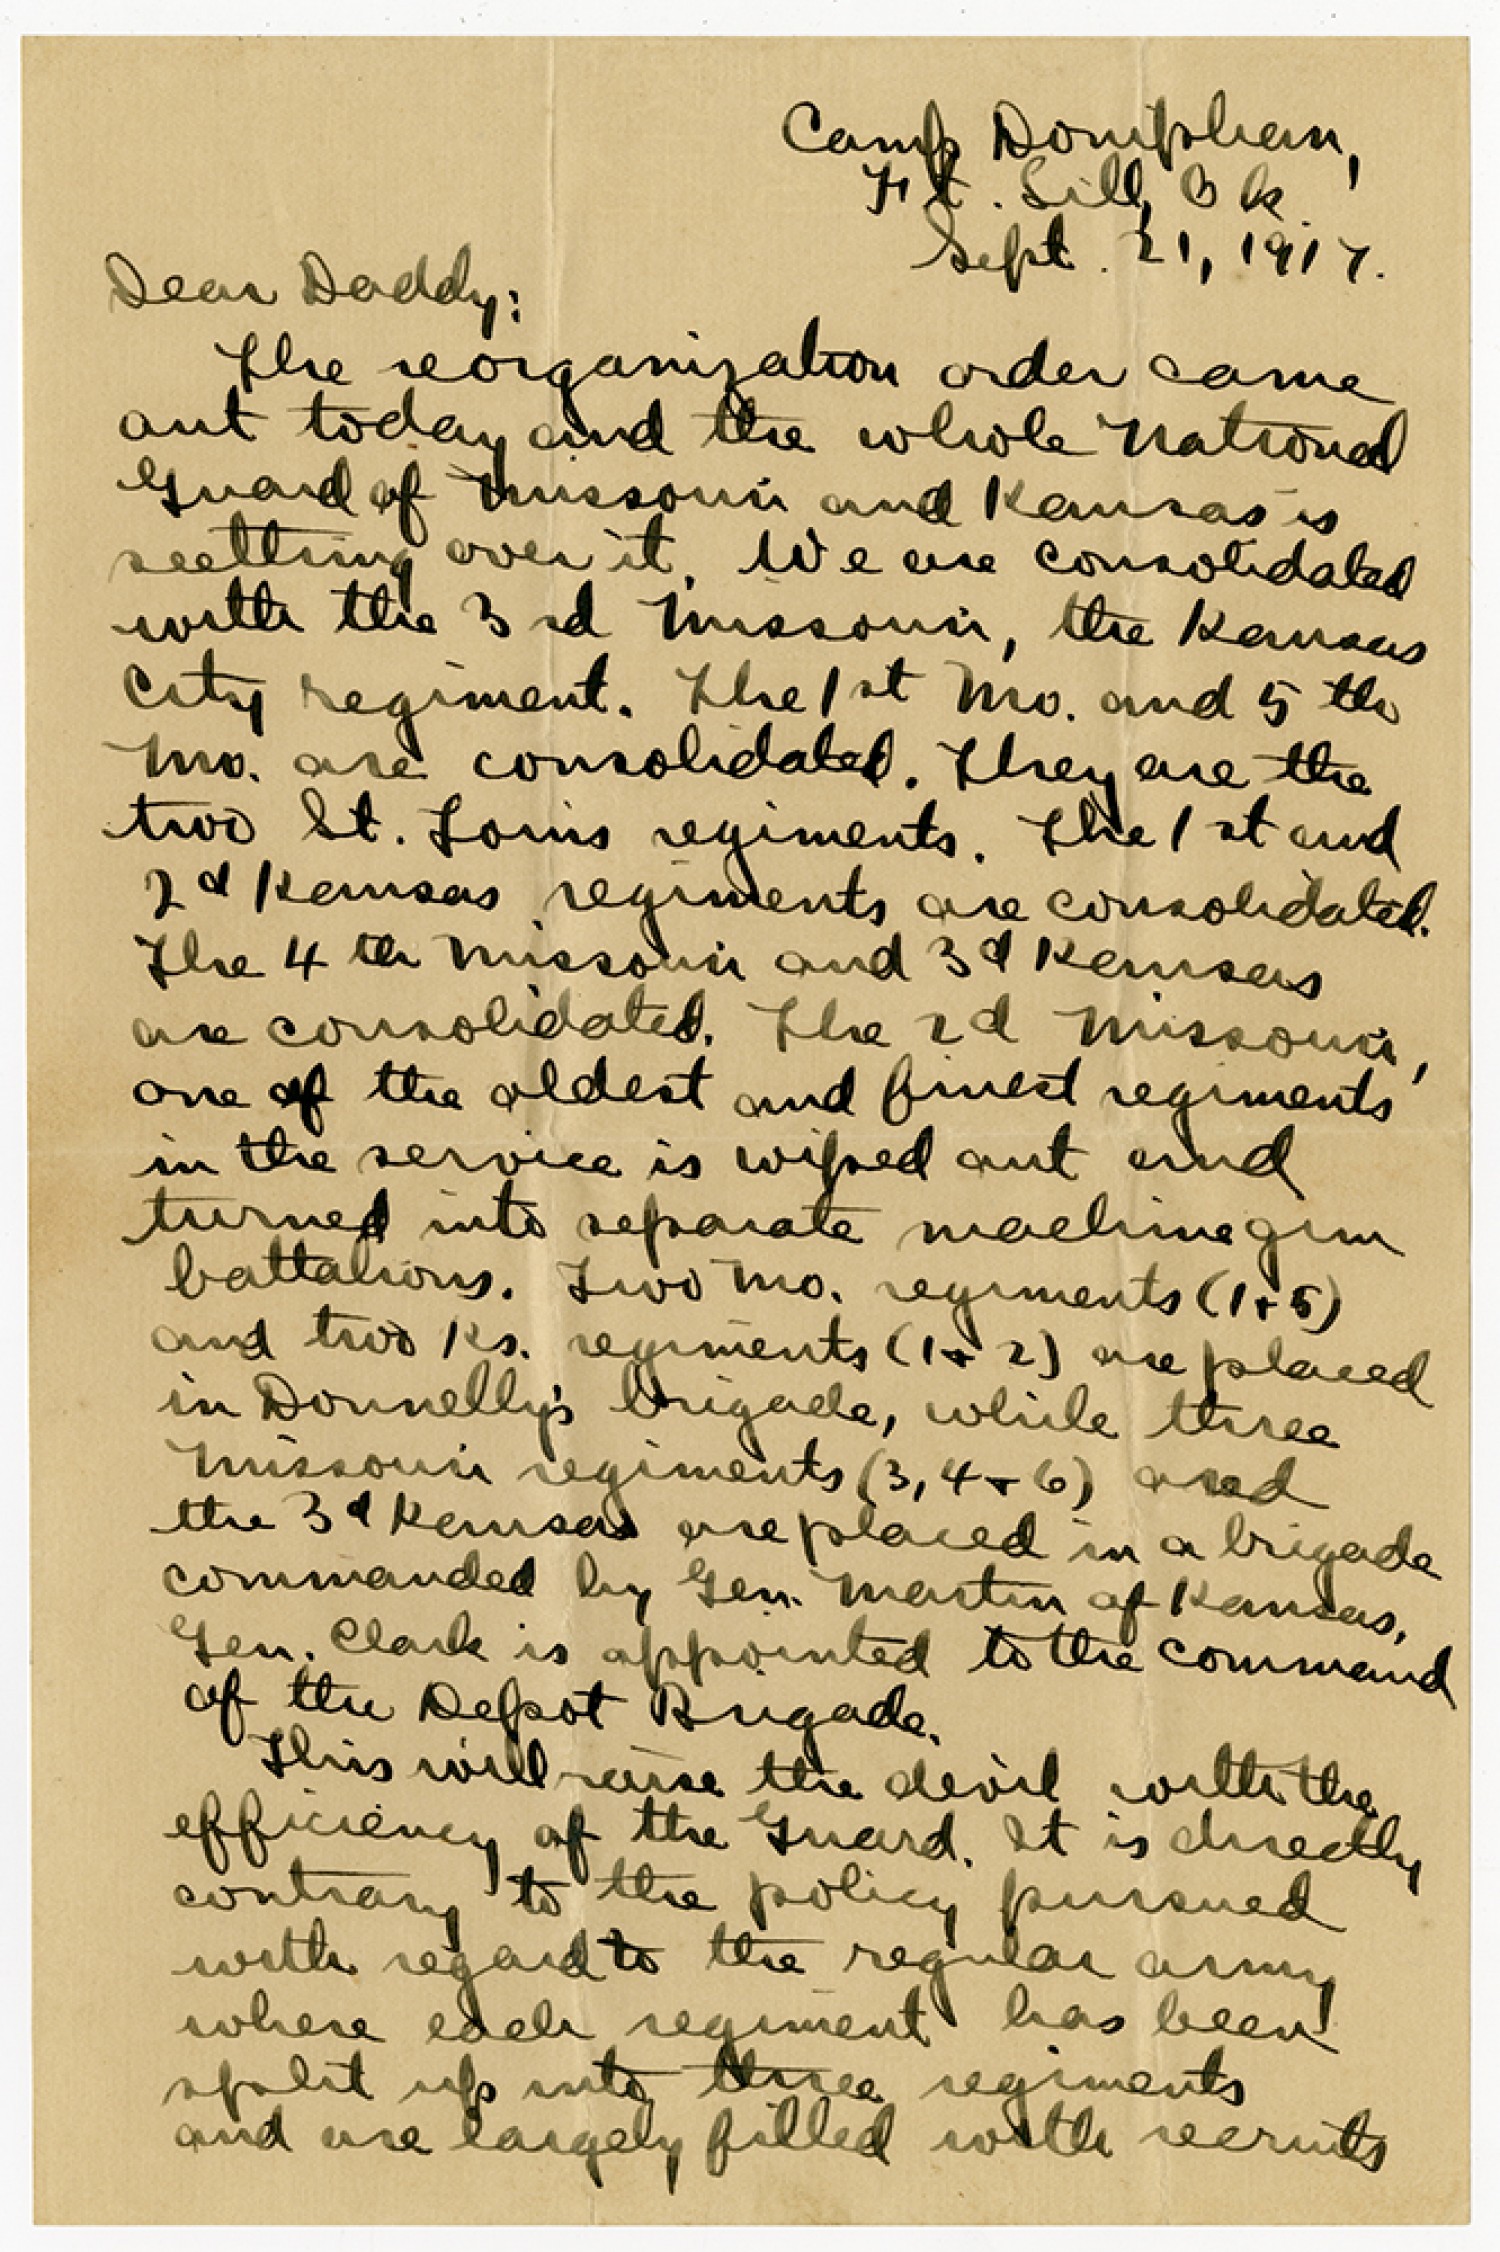 Camp Doniphan,
Ft. Sill, Ok.
Sept. 21, 1917.
Dear Daddy:
The reorganization order came
out today and the whole National
Guard of Missouri and Kansas is
seething over it. We are consolidated
with the 3rd Missouri, the Kansas
City regiment. The 1st Mo. and 5th
Mo. are consolidated. They are the
two St. Louis regiments. The 1st and
2d Kansas regiments are consolidated.
The 4th Missouri and 3d Kansas
are consolidated. The 2d Missouri,
one of the oldest and finest regiments
in the service is wiped out and
turned into separate machine gun
battalions. Two Mo. regiments (1 + 5)
and two Ks. regiments (1 + 2) are placed
in Donnelly's brigade, while three
Missouri regiments (3, 4 + 6) and
the 3d Kansas are placed in a brigade
commanded by Gen. Martin of Kansas.
Gen. Clark is appointed to the command
of the Depot Brigade.
This will raise the devil with the
efficiency of the Guard. It is directly
contrary to the policy pursued
with regard to the regular army
where each regiment has been
split up into three regiments
and are largely filled with recruits